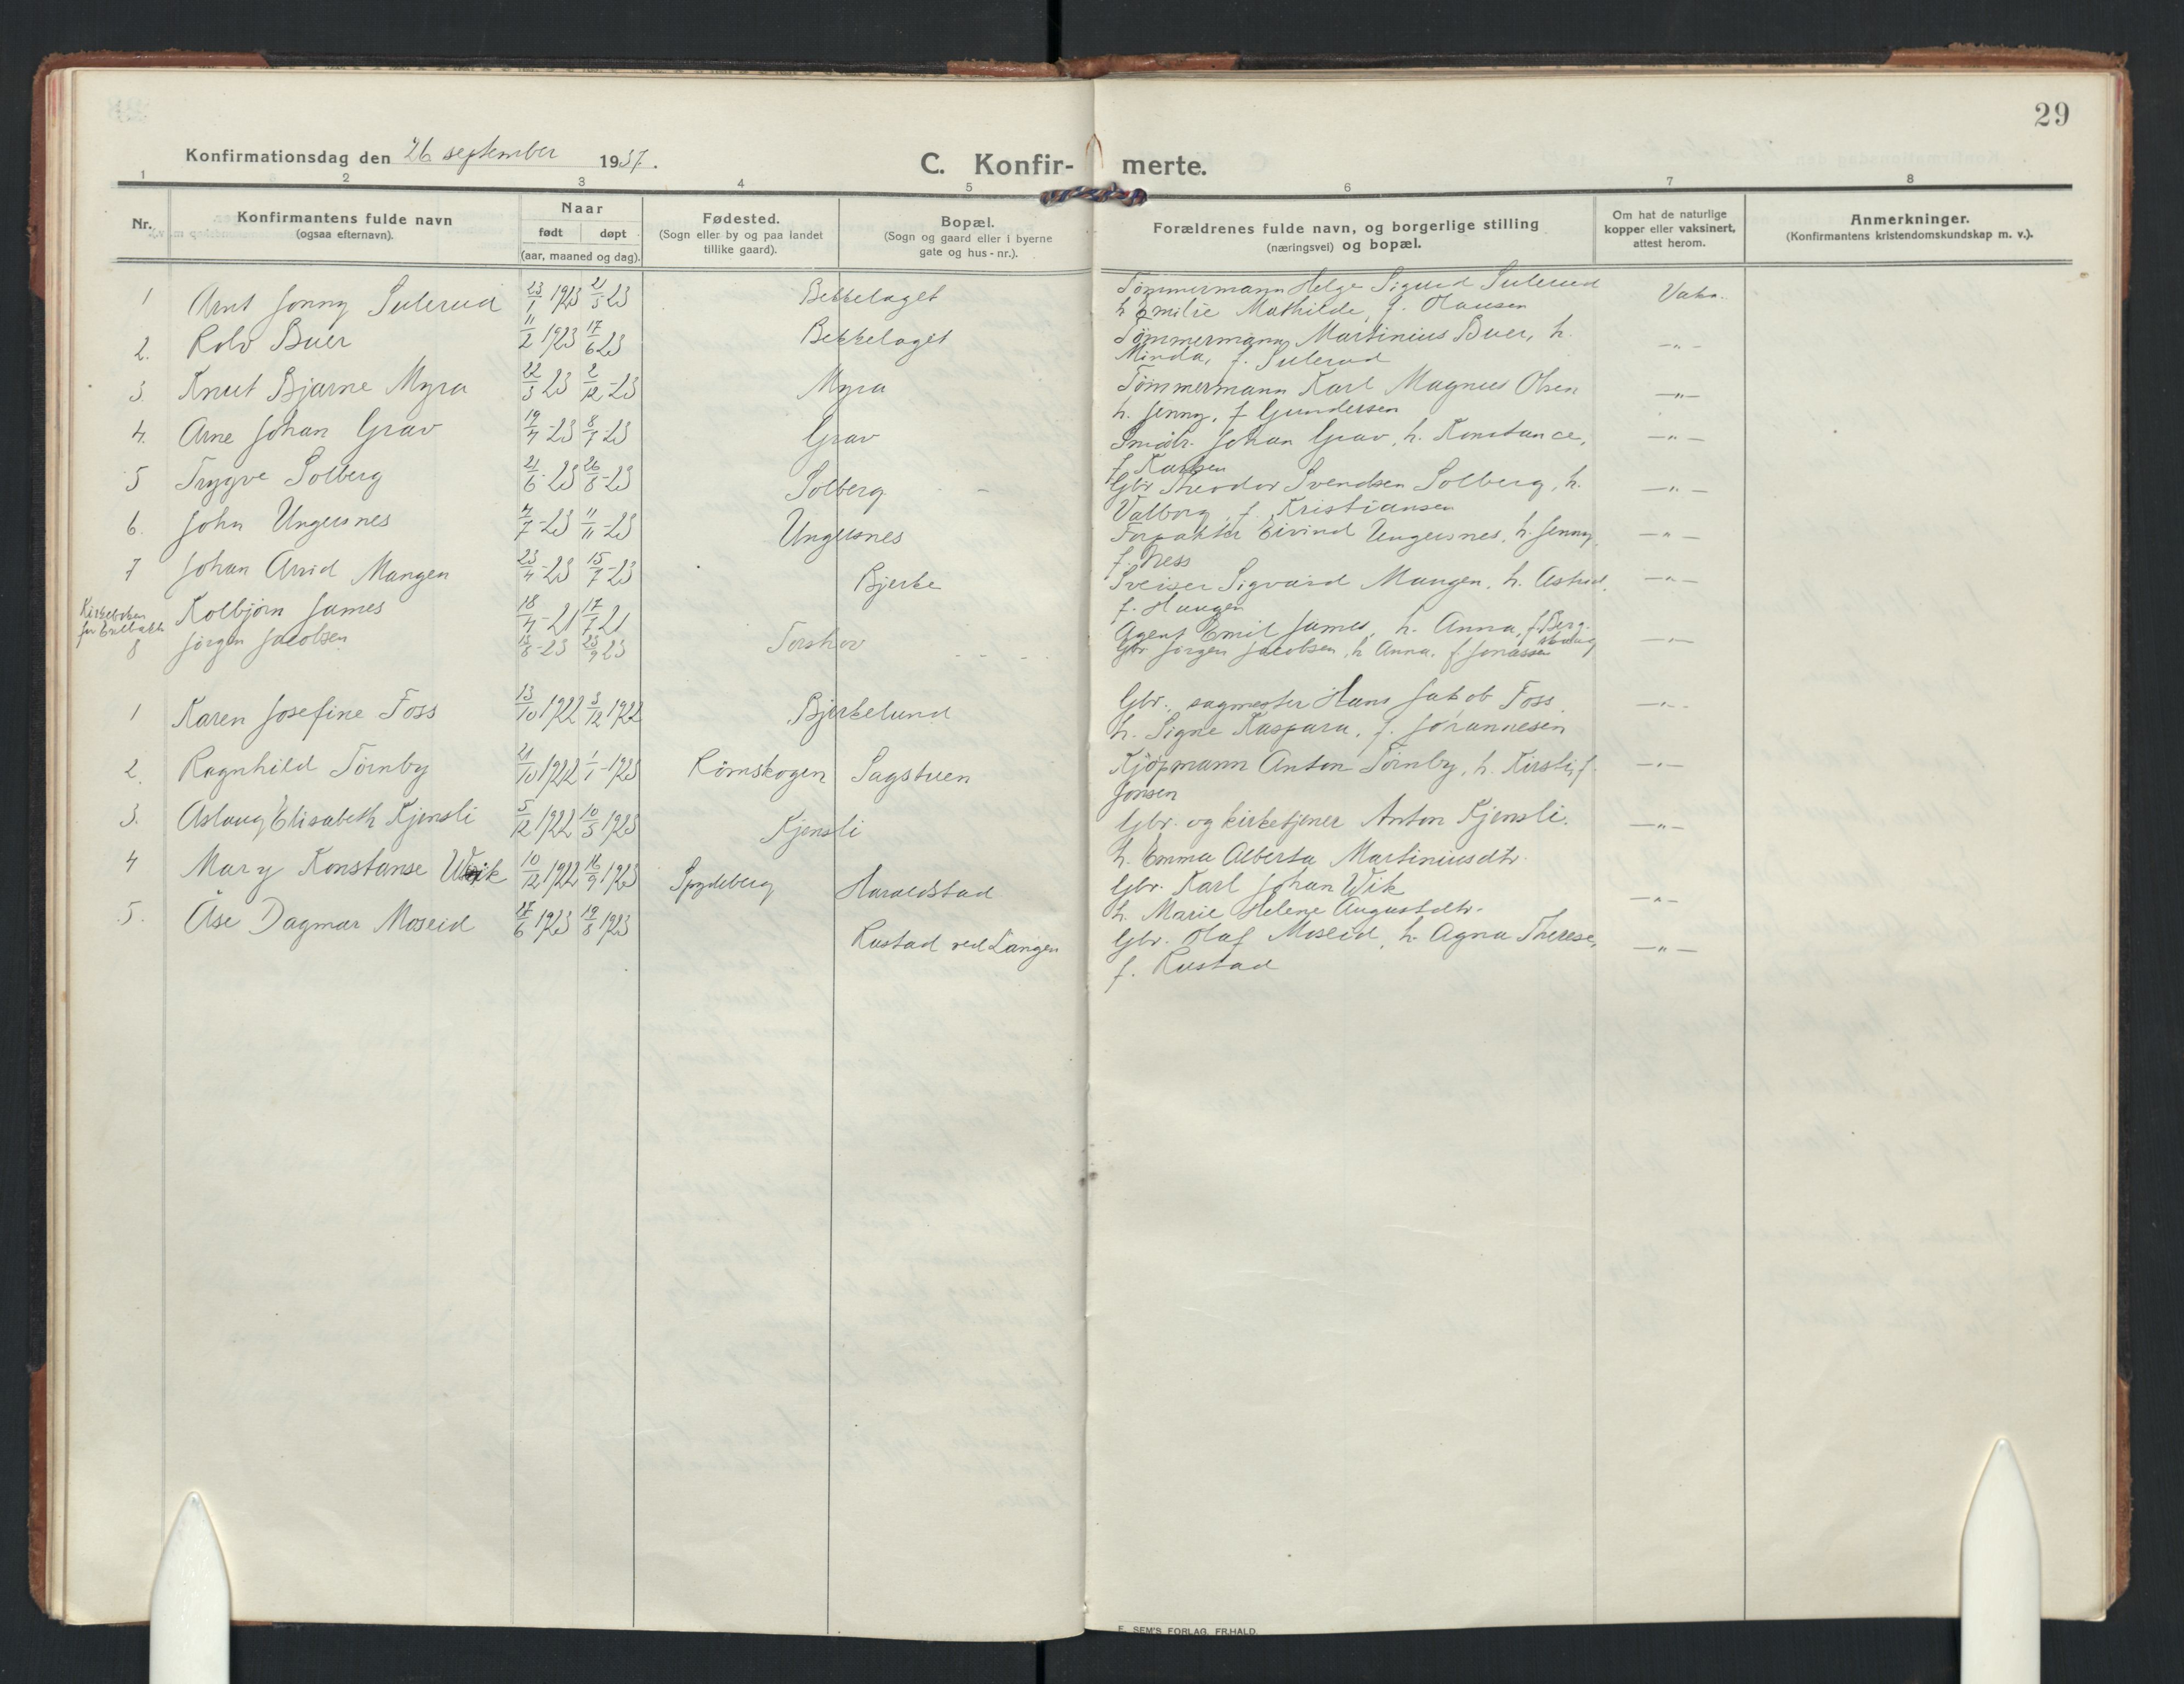 29
Konfirmationsdag den 26 september 1937.
C. Konfir- merte.
1 2 3 4 5 6 7 8
Nr. Konfirmantens fulde navn (ogsaa efternavn). Naar født døpt (aar, maaned og dag). Fødested. (Sogn eller by og paa landet tillike gaard). Bopæl. (Sogn og gaard eller i byerne gate og hus-nr.). Forældrenes fulde navn, og borgerlige stilling (næringsvei) og bopæl. Om hat de naturlige kopper eller vaksinert, attest herom. Anmerkninger. (Konfirmantens kristendomskundskap m. v.).
1 Arnt Jonny Sulerud 23/1 1923 21/3 23 Bekkelaget Tømmermann Helge Sigurd Sulerud Vaks.
h Emilie Mathilde, f. Hansen
2. Rolv Buer 11/2 1923 17/6 23 Bekkelaget Tømmermann Martinius Buer, h. —"—
Minda, f. Sulerud
3. Knut Bjarne Myra 22/3 23 2/12-23 Myra Tømmermann Karl Magnus Olsen —"—
h. Jenny, f Gundersen
4. Arne Johan Grav 19/4-23 8/7-23 Grav Småbr. Johan Grav, h. Konstance, —"—
f Karlsen
5 Trygve Solberg 21/6-23 26/8-23 Solberg Gbr Theodor Svendsen Solberg, h. —"—
Valborg, f. Kristiansen
6. John Ungersnes 7/7-23 11/11-23 Ungersnes Forpakter Eivind Ungersnes, h. Jenny, —"—
f. Ness
7 Johan Arvid Mangen 23/4-23 15/7-23 Bjerke Sveiser Sigvard Mangen, h. Astrid, —"—
f. Haugen
Kirkeboken for
Kolbjørn James 18/4-21 17/7 21 Agent Emil James, h. Anna, f. Berg.
8 Jørgen Jacobsen 13/8-23 23/9 23 Torshov Gbr Jørgen Jacobsen, h Anna, f. Jonassen —"—
1 Karen Josefine Foss 13/10 1922 3/12 1922 Bjerkelund Gbr., sagmester Hans Jakob Foss —"—
h. Signe Kaspara, f. Johannesen
2. Ragnhild Tørnby 21/10 1922 1/1-1923 Rømskogen Sagstuen Kjøpmann Anton Tørnby, h. Kirsti, f. —"—
Jonsen
3. Aslaug Elisabeth Kjensli 5/12 1922 10/3 1923 Kjensli Gbr. og kirketjener Anton Kjensli. —"—
h. Emma Alberta Martiniusdtr.
4 Mary Konstanse Wik 10/12 1922 16/9 1923 Spydeberg Haraldstad Gbr. Karl Johan Wik —"—
h. Marie Helene Augustdtr.
5. Åse Dagmar Moseid 27/6 1923 19/8 1923 Rustad ved Langen Gbr. Olaf Moseid, h. Agna Therese, —"—
f. Rustad
E. SEM'S FORLAG, FR.HALD.